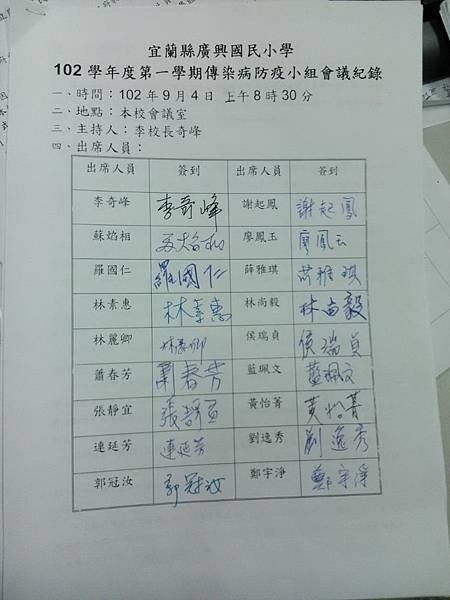 宜蘭縣廣興國民小學
102 學年度第一學期傳染病防疫小組會議紀錄
一、時間：102 年 9 月 4 日 上午 8 時 30 分
二、地點：本校會議室
三、主持人：李校長奇峰
四、出席人員：
出席人員 簽到 出席人員 簽到
李奇峰 李奇峰 謝起鳳 謝起鳳
蘇焰相 蘇焰相 廖鳳玉 廖鳳玉
羅國仁 羅國仁 薛雅琪 薛雅琪
林素惠 林素惠 林尚毅 林尚毅
林麗卿 林麗卿 侯瑞貞 侯瑞貞
蕭春芳 蕭春芳 藍珮文 藍珮文
張靜宜 張靜宜 黃怡菁 黃怡菁
連延芳 連延芳 劉逸秀 劉逸秀
郭冠汝 郭冠汝 鄭宇淨 鄭宇淨